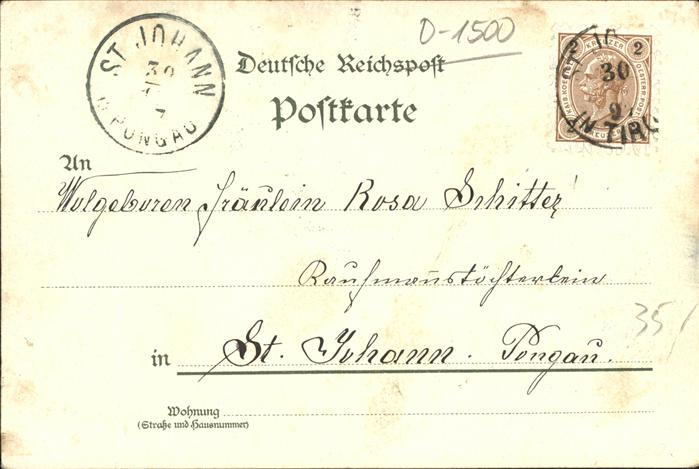 D-1500
ST JOHANN
30
9
PONGAU
Deutsche Reichspost
Postkarte
2 KREUZER 2
30
9
IN TIRO
An
Wolgeboren Fräulein Rosa Schitter
Kaufmannstöchterlein
in St. Johann. Pongau.
35
Wohnung
(Straße und Hausnummer)